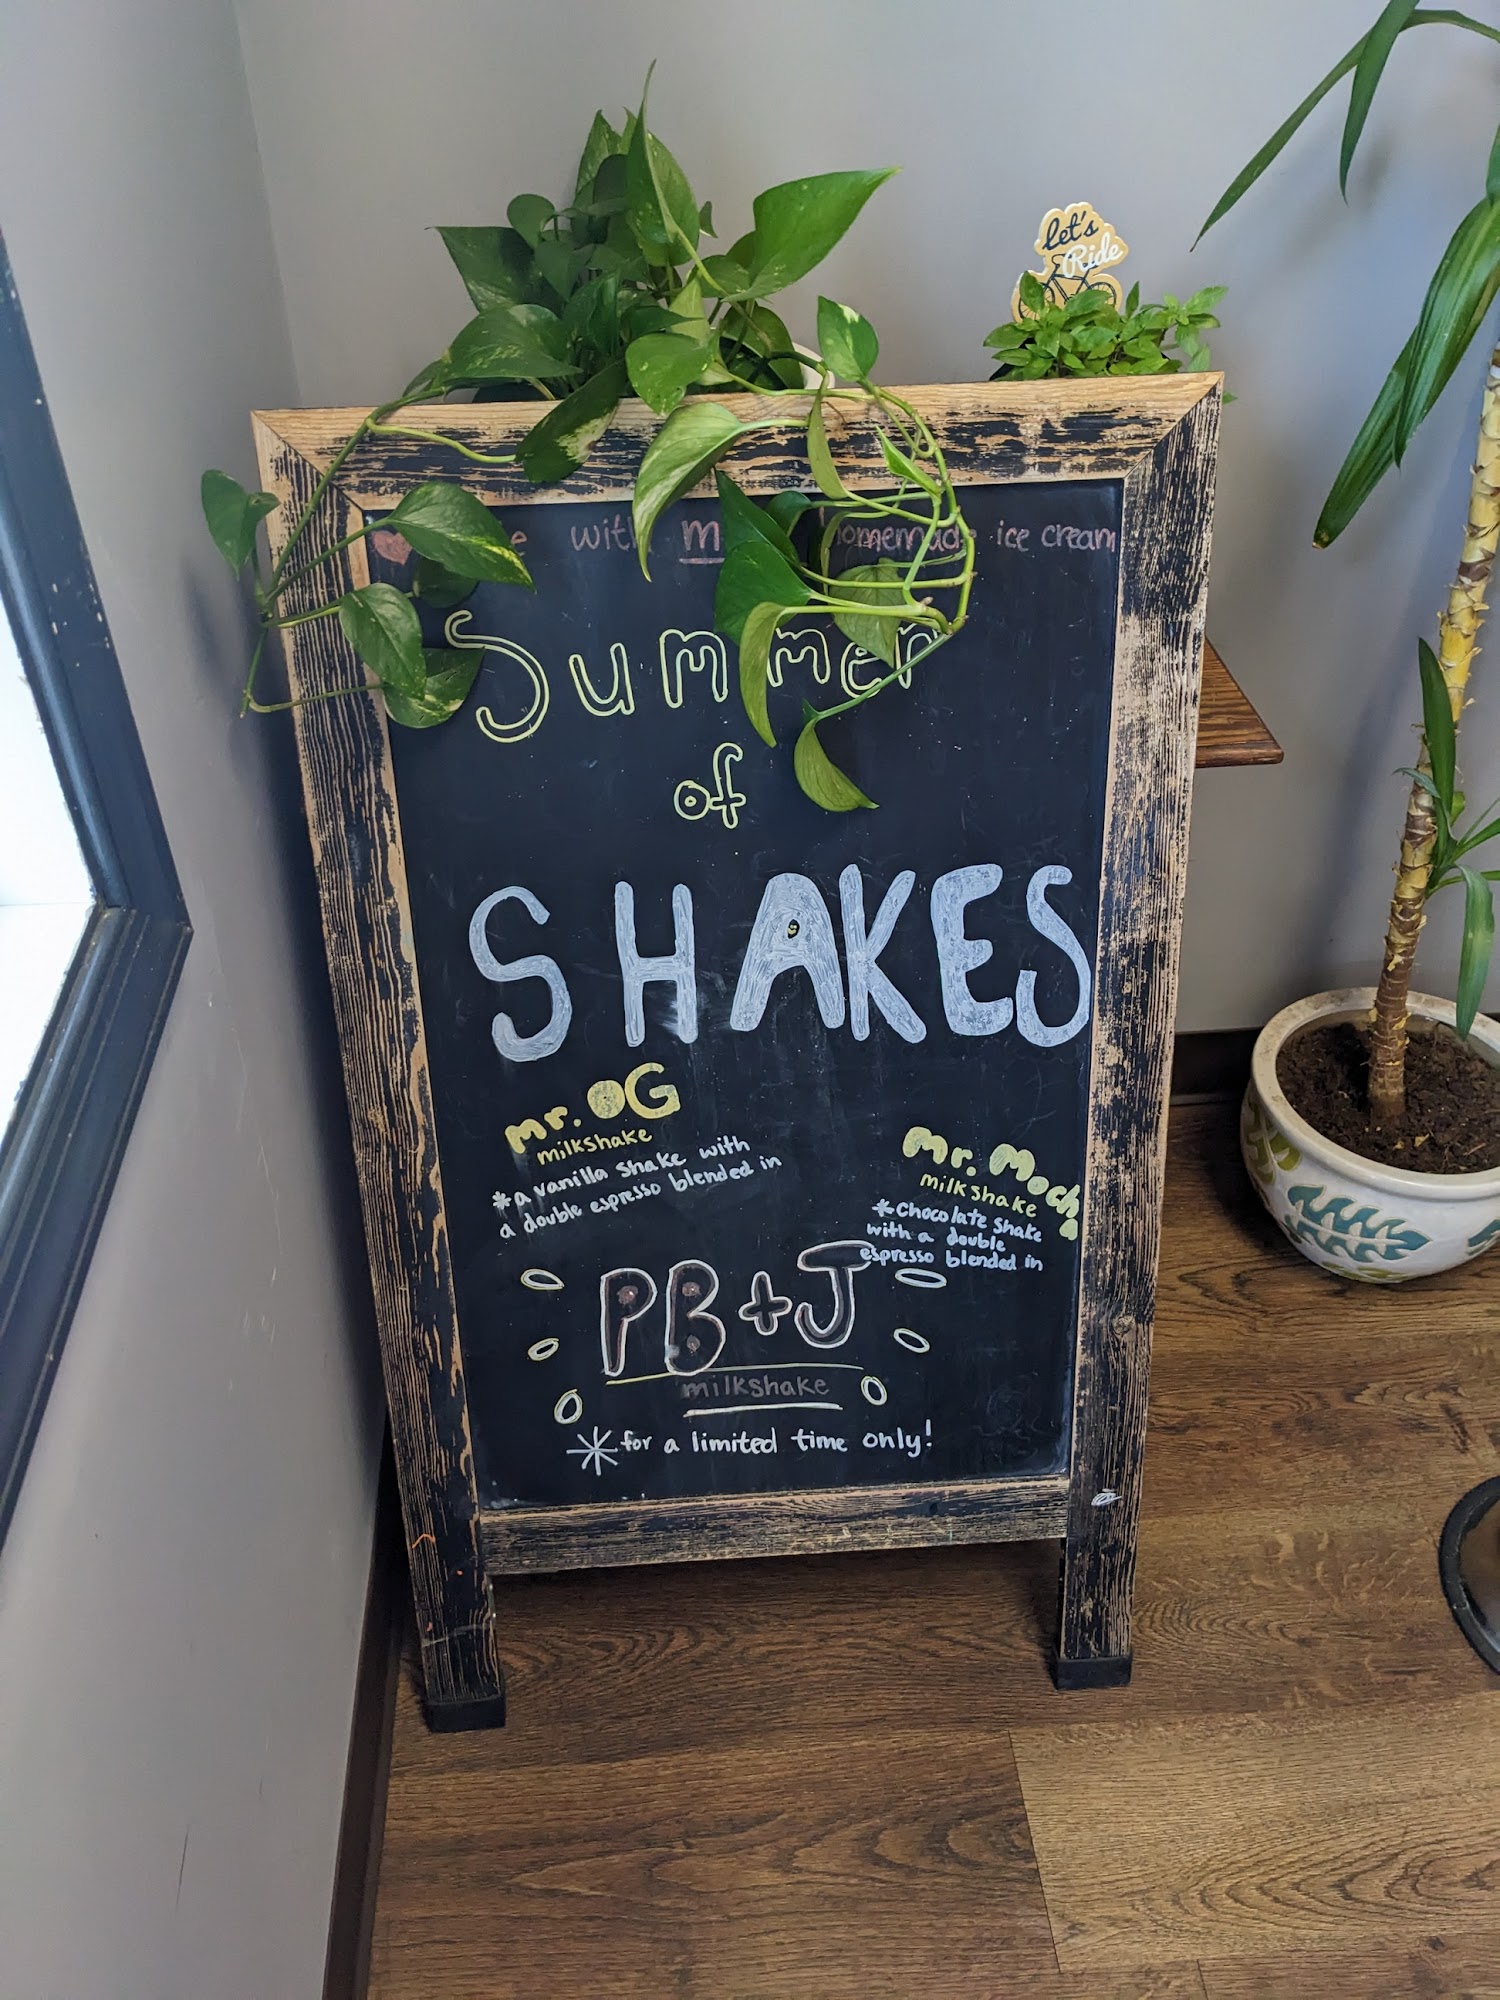 let's
Ride
with homemade ice cream
Summer
of
SHAKES
mr. OG
milkshake
*a vanilla shake with
a double espresso blended in
Mr. Mocha
milkshake
*Chocolate shake
with a double
espresso blended in
PB+J
milkshake
*for a limited time only!